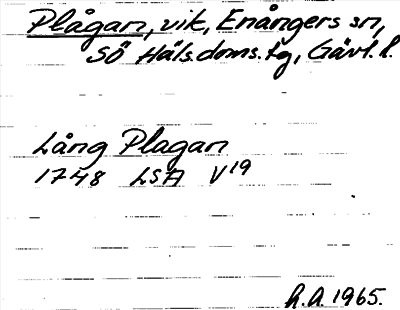 Plågan, vik, Enångers sn,
SÖ Häls. doms. tg, Gävl. l.
Lång Plagan
1748 LSA V19
h.a. 1965.